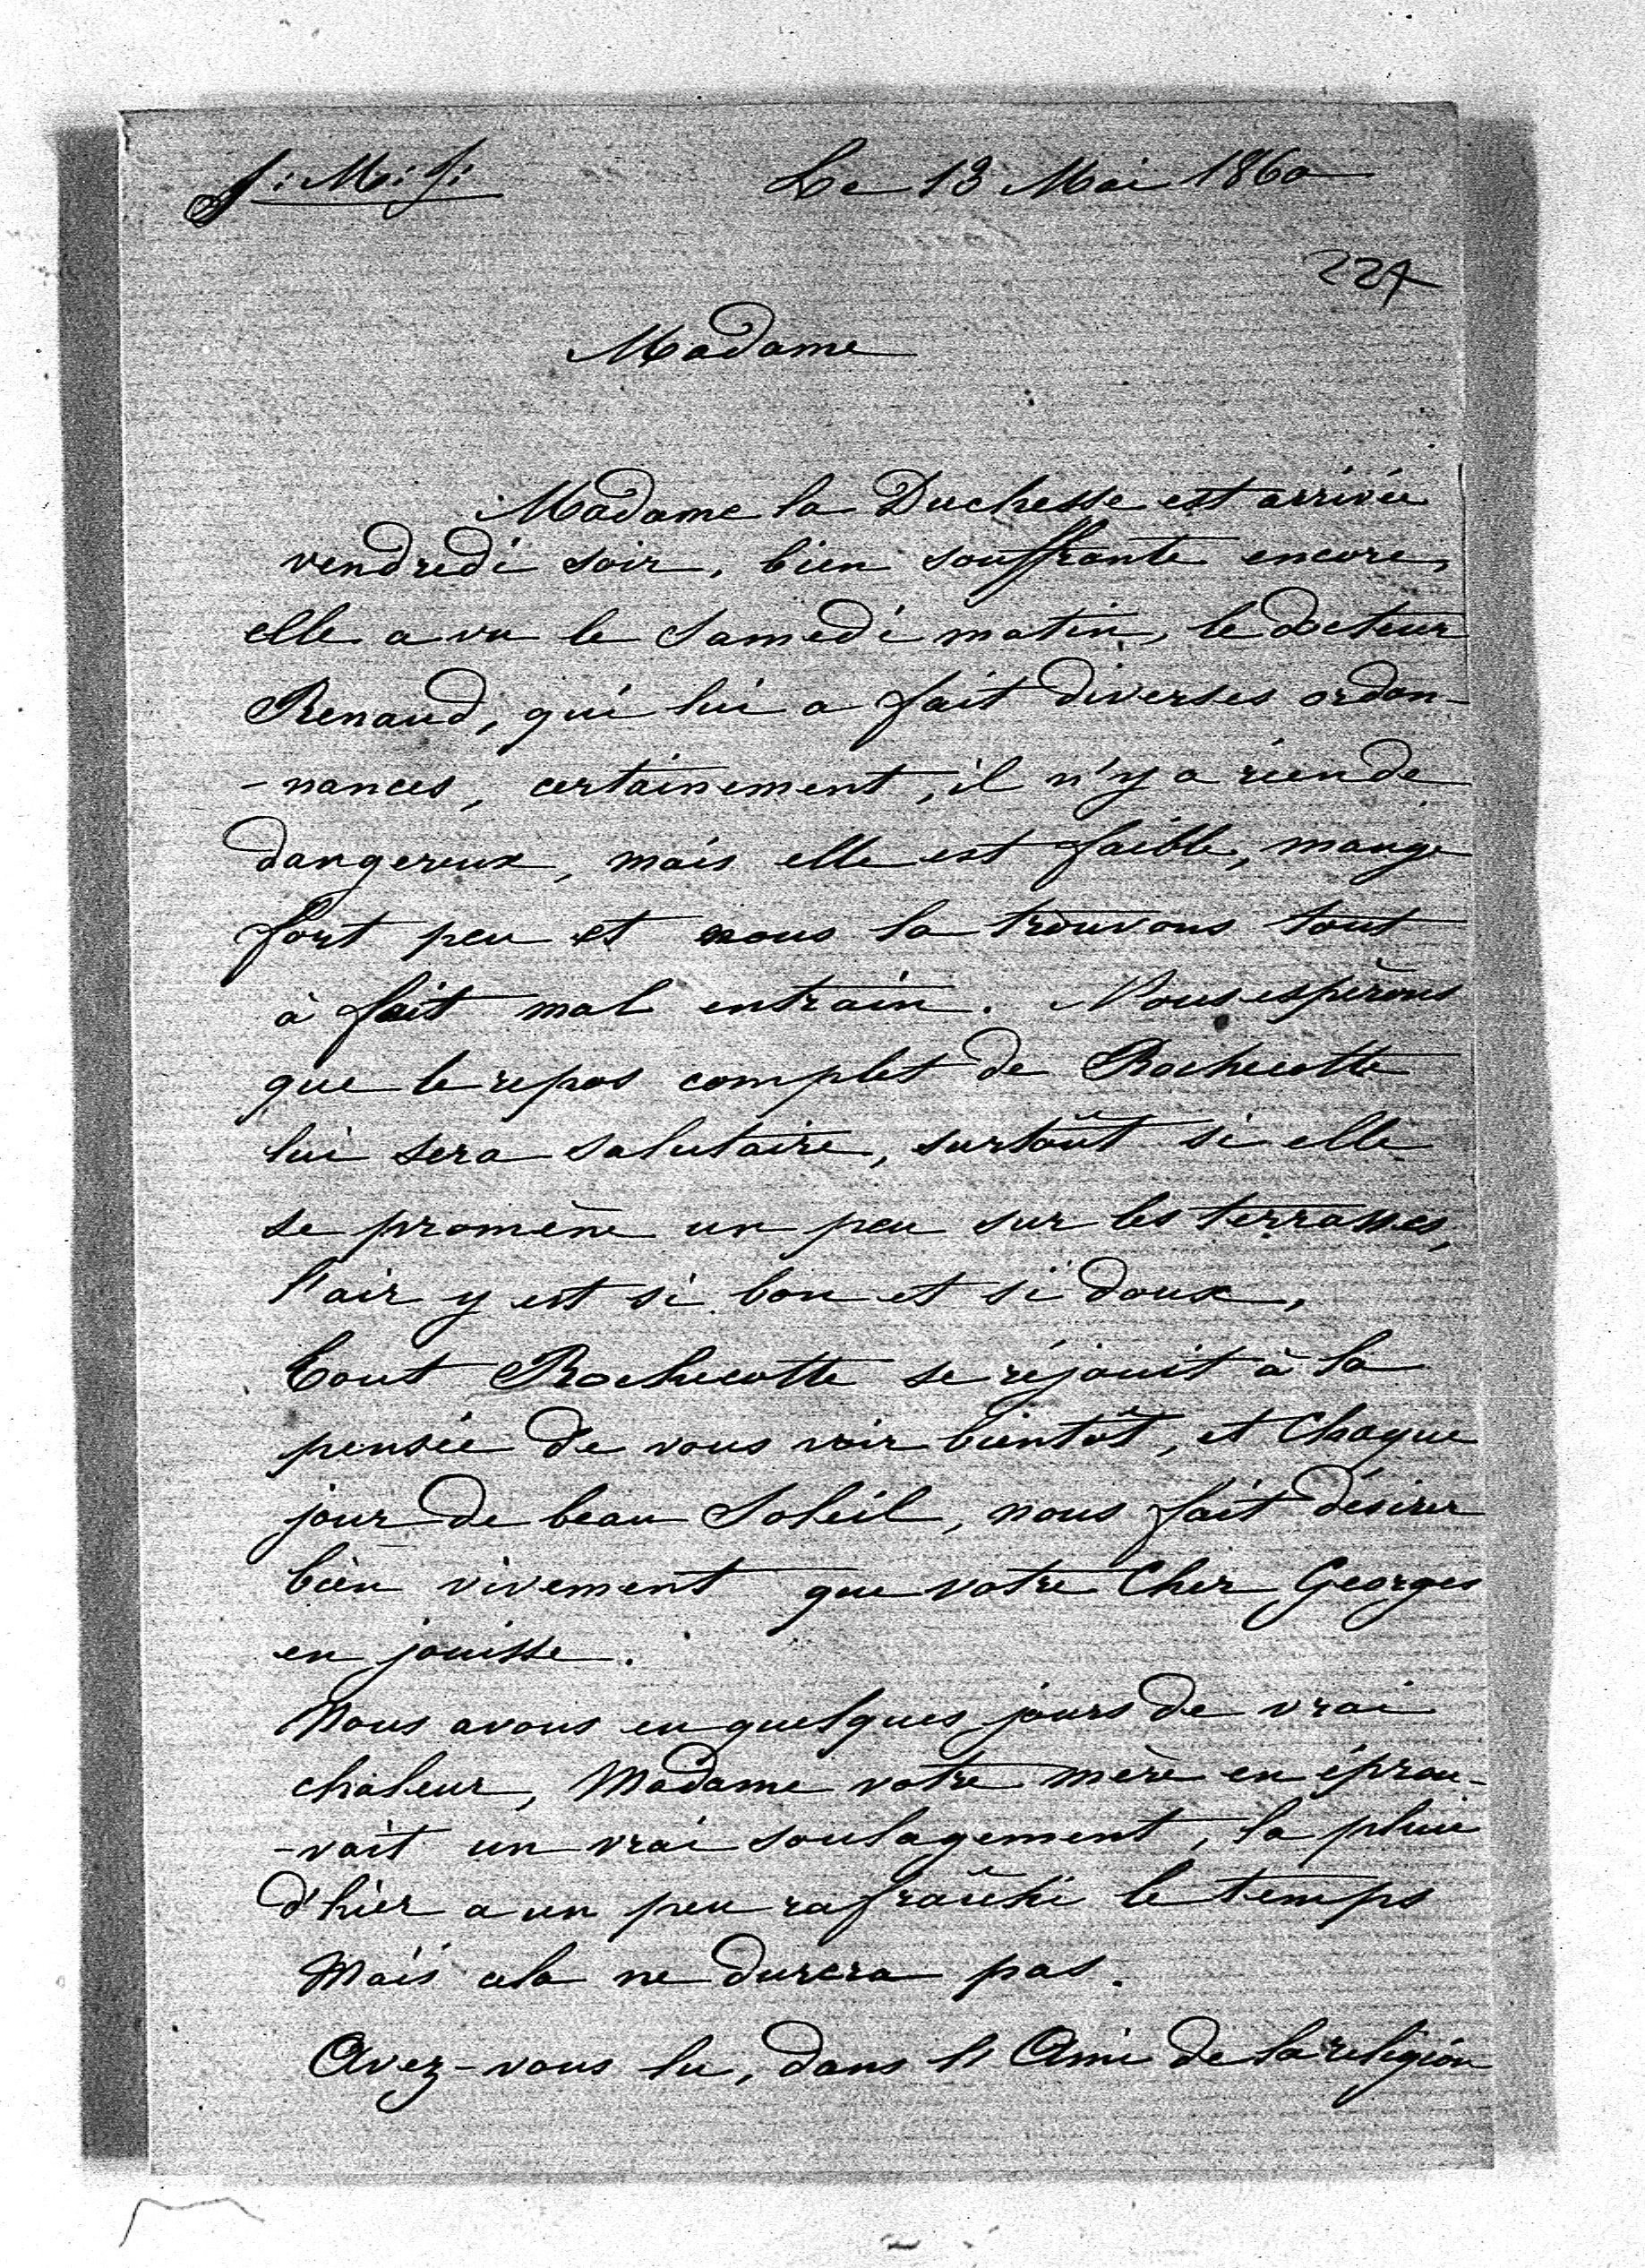 J: M: J:
Le 13 Mai 1860
227
Madame
Madame la Duchesse est arrivée
vendredi soir, bien souffrante encore,
elle a vu le Samedi matin, le docteur
Renaud, qui lui a fait diverses ordon-
-nances, certainement, il n'y a rien de
dangereux, mais elle est faible, mange
fort peu et nous la trouvons tout
à fait mal entrain. Nous espérons
que le repos complet de Rochecotte
lui sera salutaire, surtoût si elle
se promène un peu sur les terrasses,
l'air y est si bon et si doux,
Tout Rochecotte se réjouit à la
pensée de vous voir bientôt, et Chaque
jour de beau Soleil, nous fait désirer
bien vivement que votre Cher Georges
en jouisse.
Nous avons eu quelques jours de vrai
chaleur, Madame votre mère en éprou-
-vait un vrai soulagement, la pluie
d'hier a un peu rafraîchi le temps
Mais cela ne durera pas.
Avez-vous lu, dans l'Ami de la religion